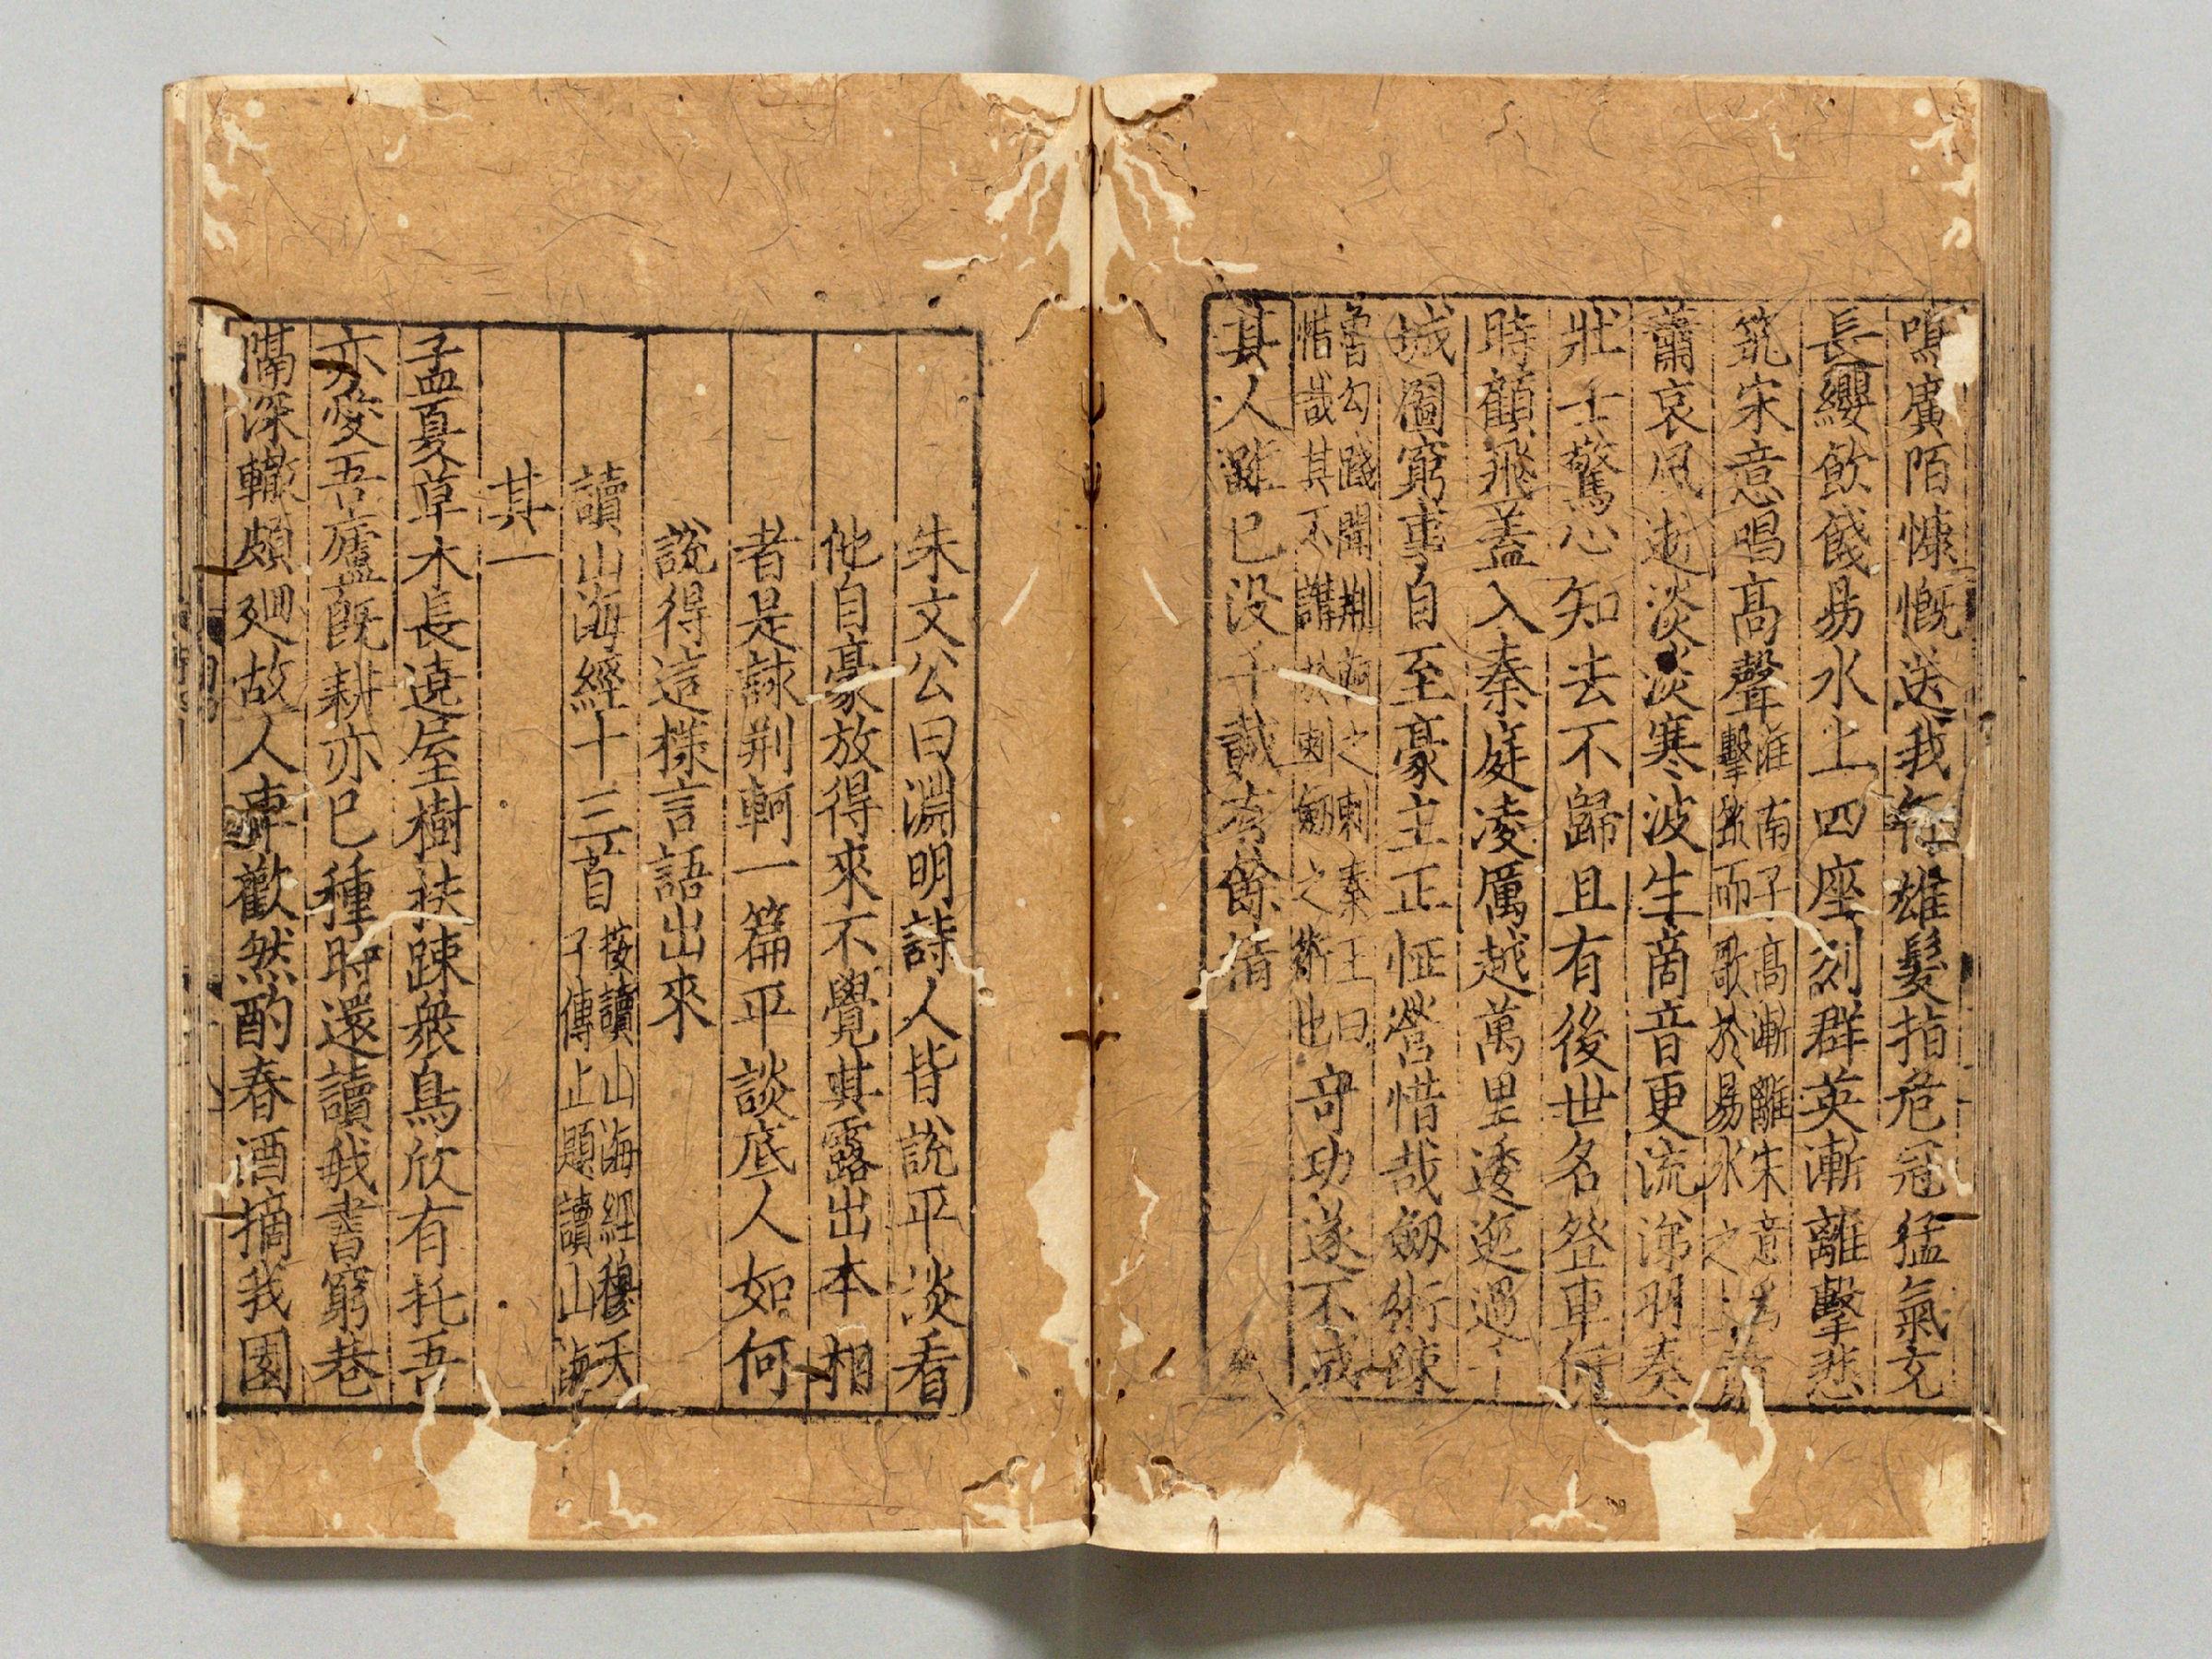 鳴廣陌慷慨送我行雄髮指危冠猛氣充
長纓飲餞易水上四座列群英漸離擊悲
筑宋意唱高聲淮南子高漸離朱意爲擊筑而歌於易水之上
蕭哀風逝淡淡寒波生商音更流涕羽奏
壯士驚心知去不歸且有後世名登車何
時顧飛蓋入秦庭凌厲越萬里逶迤過千
城圖窮事自至豪主正怔營惜哉劒術踈
魯勾踐聞荆軻之刺秦王曰惜哉其不講於刺劒之術也奇功遂不成
其人雖已没千載有餘情
朱文公曰淵明詩人皆說平淡看
他自豪放得來不覺其露出本相
者是詠荆軻一篇平談底人如何
說得這樣言語出來
讀山海經十三首按讀山海經穆天子傳止題讀山海
其一
孟夏草木長遶屋樹扶踈衆鳥欣有托吾
亦愛吾廬旣耕亦已種時還讀我書窮巷
隔深轍頗廻故人車歡然酌春酒摘我園